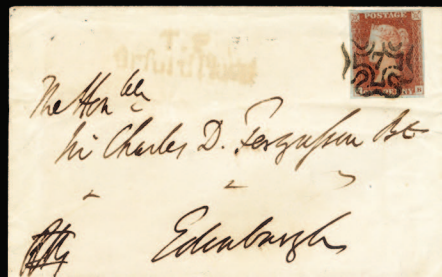 POSTAGE
The Honble
Sir Charles D. Fergusson Bt
Edinburgh